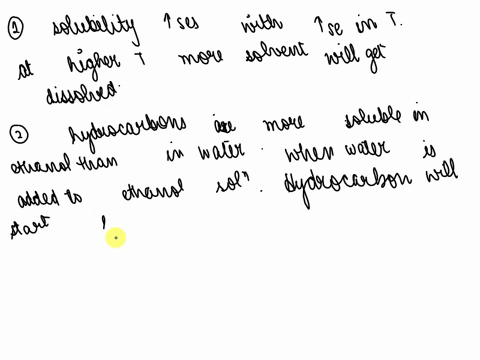 ① solubility ↑ses with ↑se in T.
at higher T more solvent will get
dissolved.
② hydrocarbons are more soluble in
ethanol than in water. when water is
added to ethanol solⁿ. Hydrocarbon will
start